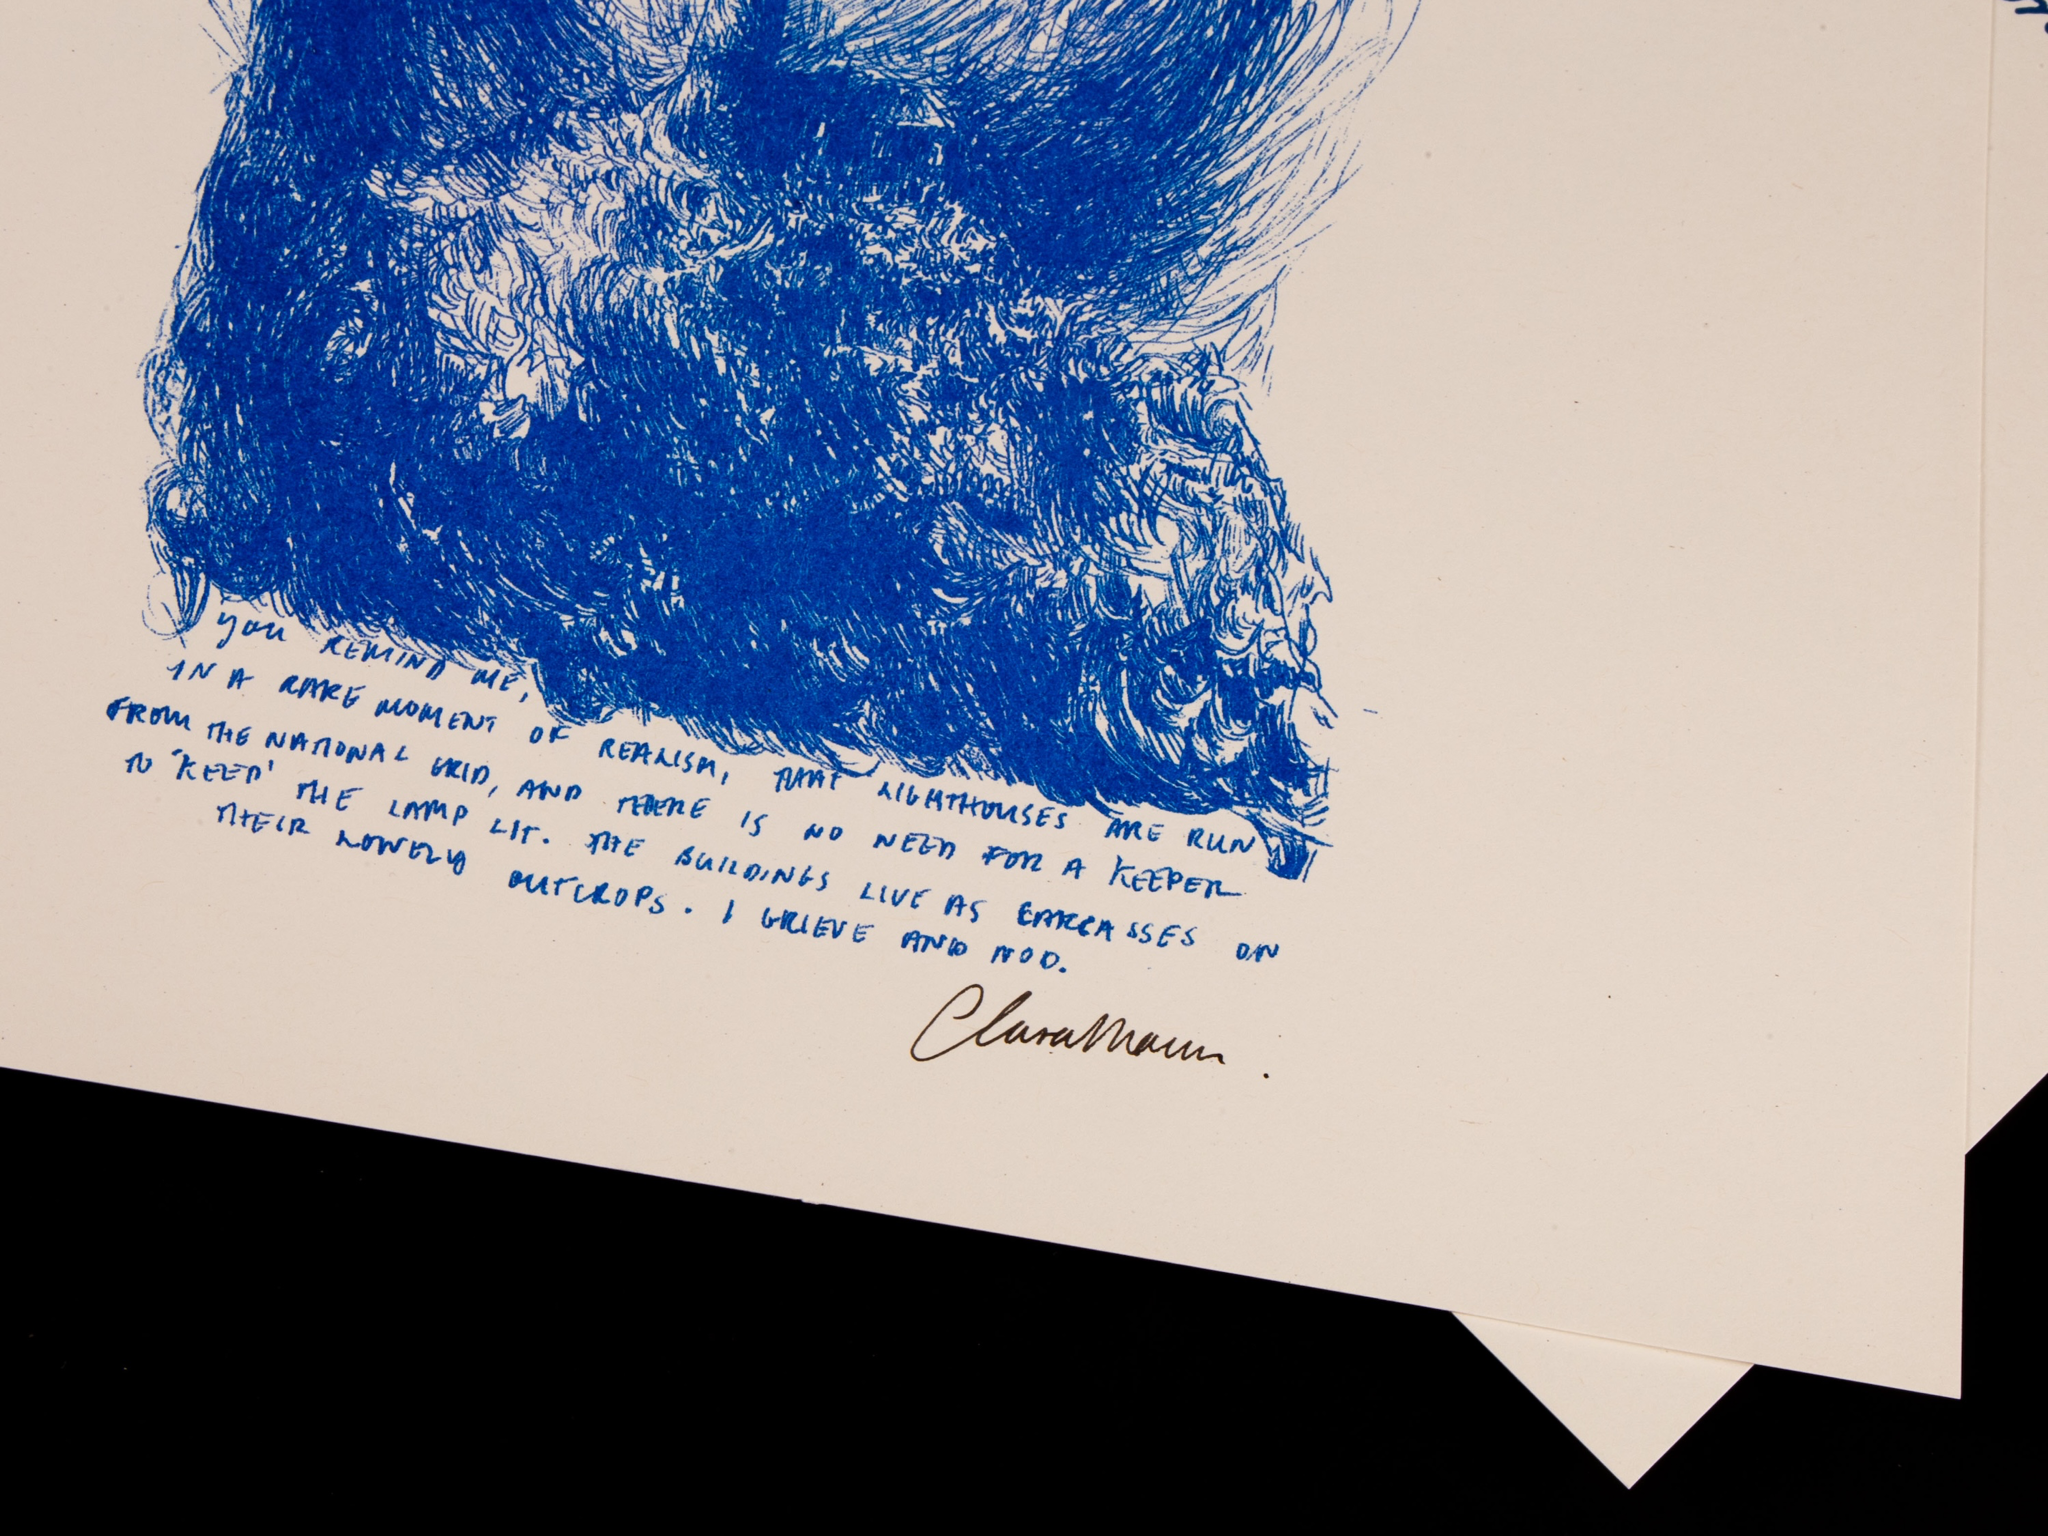 you REMIND ME,
IN A RARE MOMENT OF REALISM, THAT LIGHTHOUSES ARE RUN
FROM THE NATIONAL GRID, AND THERE IS NO NEED FOR A KEEPER
TO 'KEEP' THE LAMP LIT. THE BUILDINGS LIVE AS CARCASSES ON
THEIR LONELY OUTCROPS. I GRIEVE AND NOD.
Clara Mann.